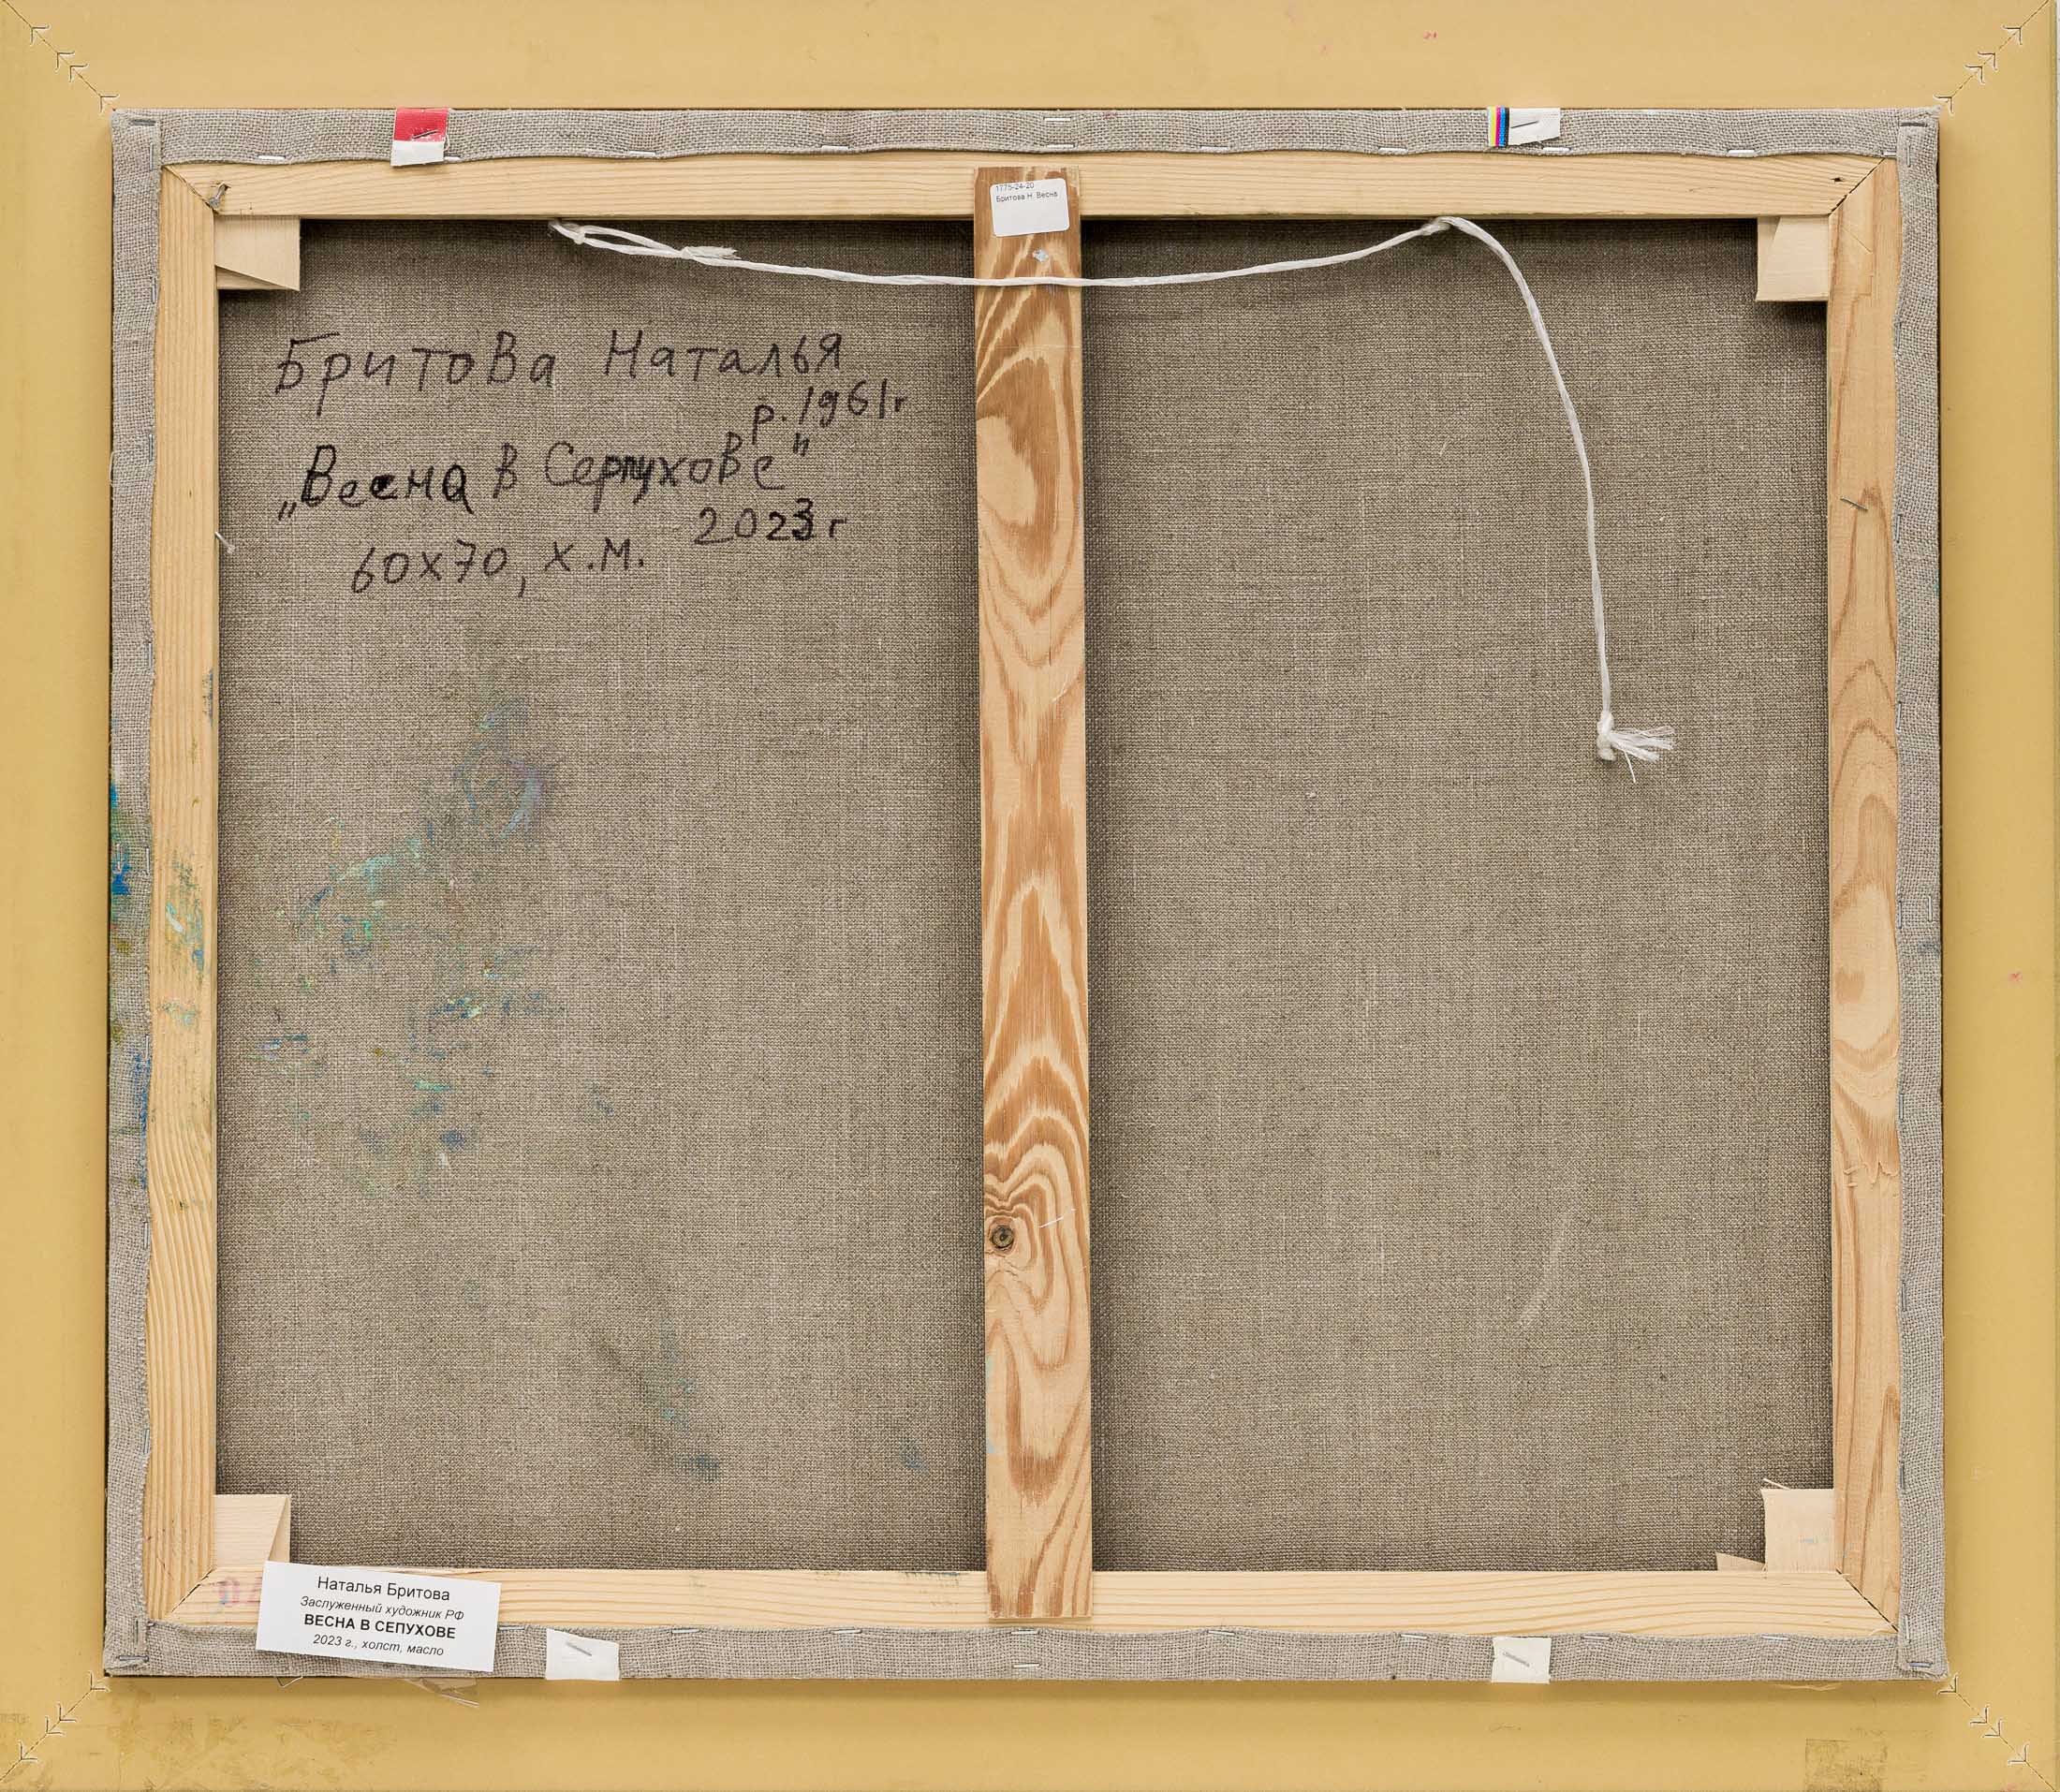 1775-24-20
Бритова Н. Весна
Бритова Наталья
р. 1961г
„Весна в Серпухове"
2023г
60х70, х.м.
Наталья Бритова
Заслуженный художник РФ
ВЕСНА В СЕПУХОВЕ
2023 г., холст, масло